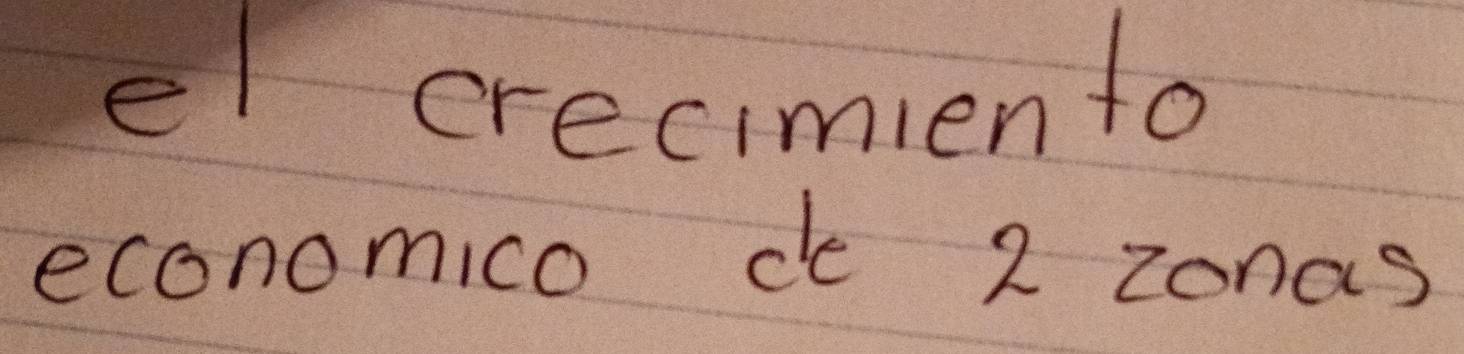 el crecimiento
economico de 2 zonas